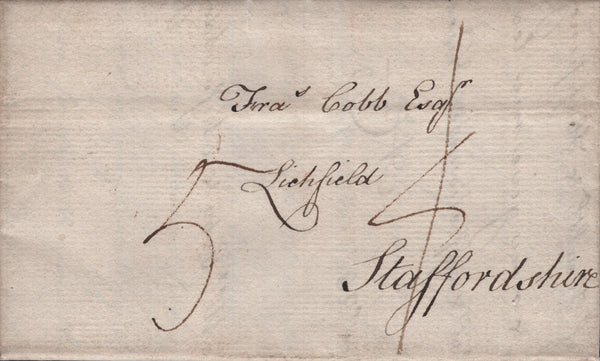 Fra^s Cobb Esq^r
Lichfield
5
Staffordshire